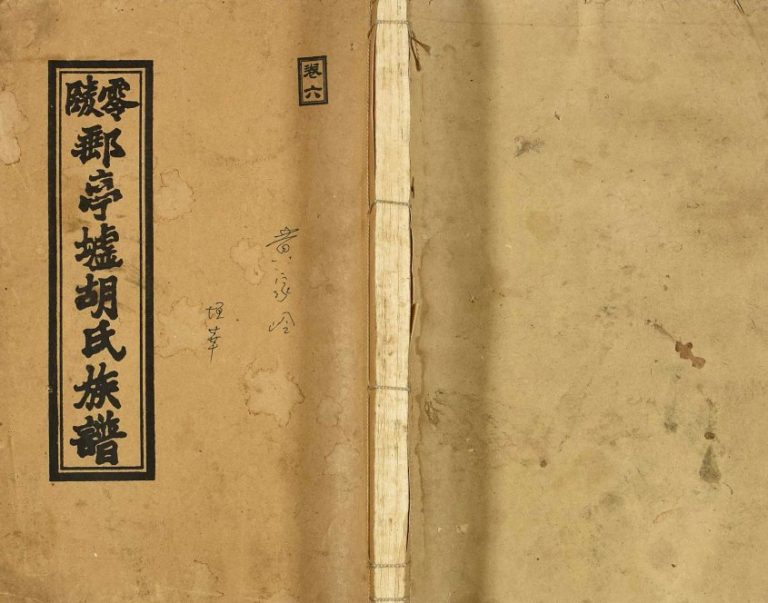 卷六
黄家岭
華
零陵
郵亭墟胡氏族譜